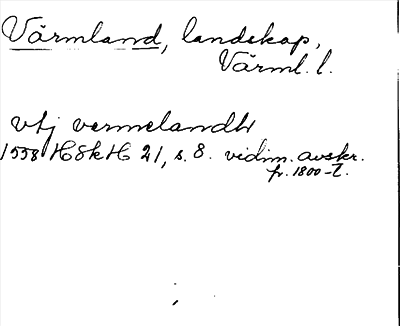 Värmland, landskap,
Värml. l.
vtj vermelandh
1558 HSkH 21, s. 8. vidim. avskr.
fr. 1800-t.